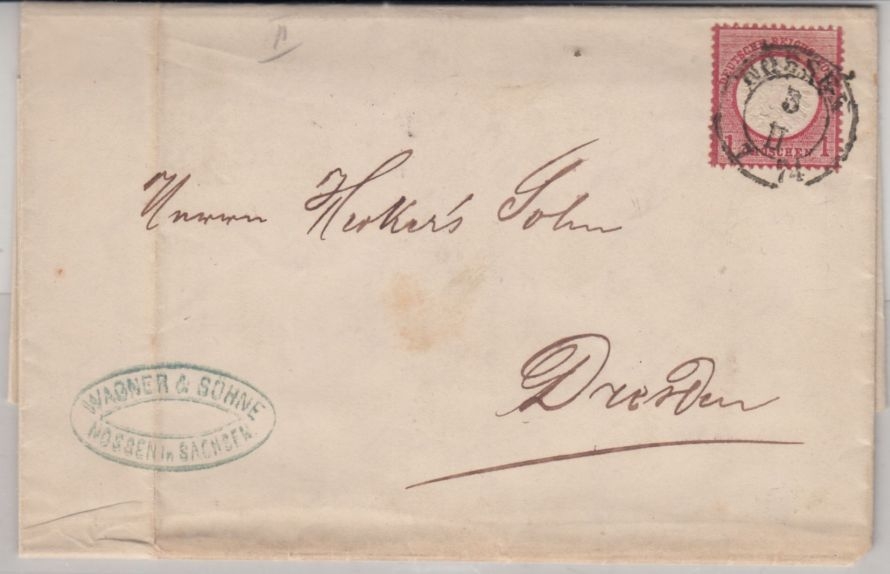 DEUTSCHE REICHS-POST
1 GROSCHEN 1
NOSSEN
3
II
74
Herrn Heckers Sohn
Dresden
WAGNER & SÖHNE
NOSSEN in SACHSEN.